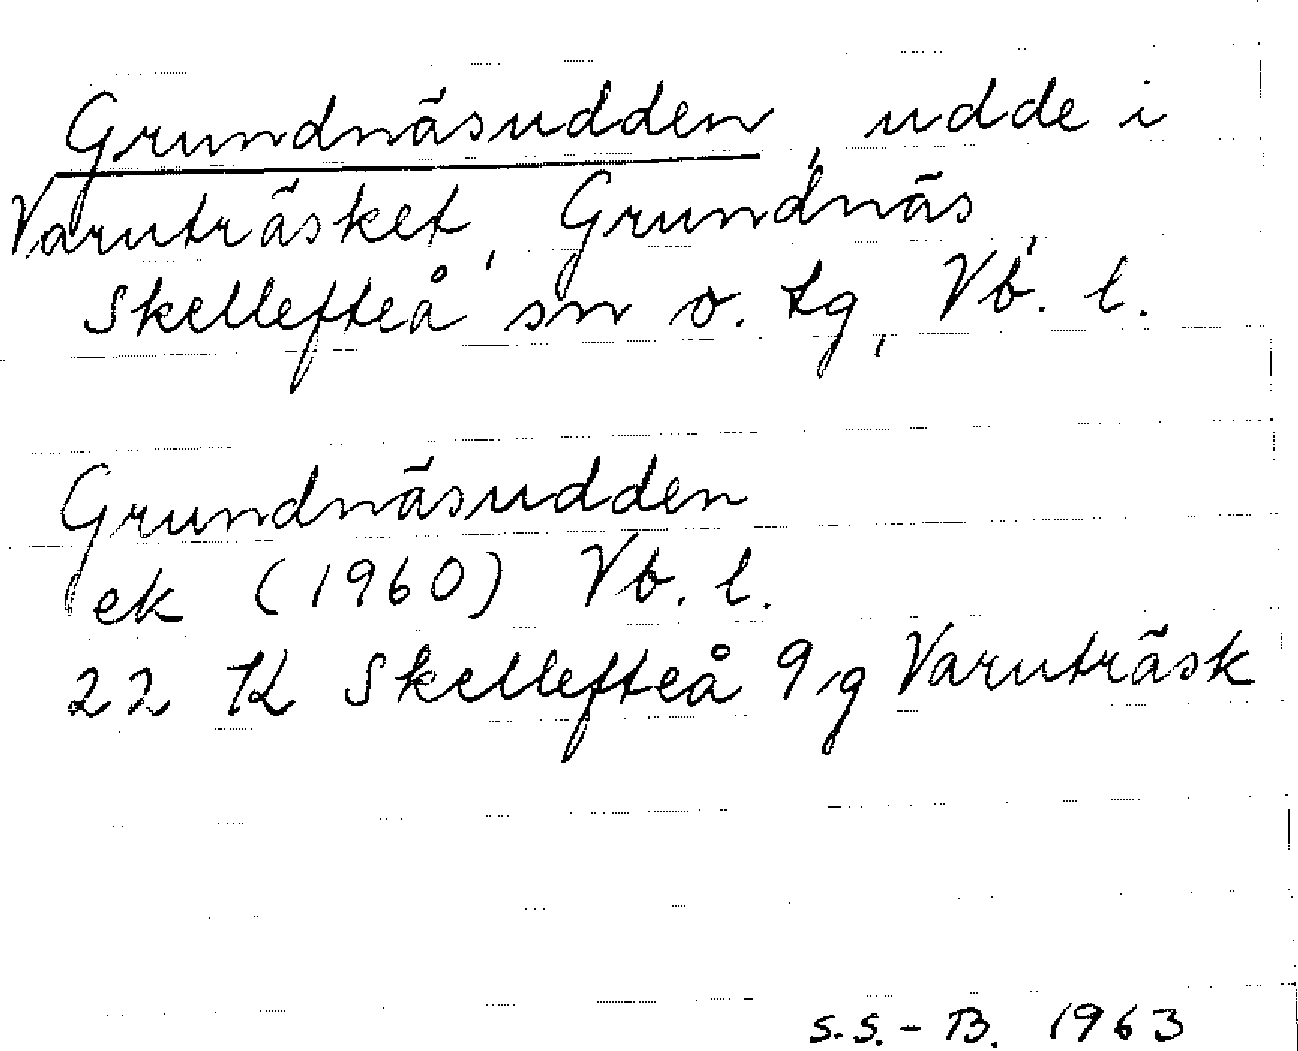 Grundnäsudden, udde i
Varuträsket, Grundnäs,
Skellefteå sn o. tg, Vb. l.
Grundnäsudden
ek (1960) Vb. l.
22 K Skellefteå 9 g Varuträsk
S.S.-B. 1963